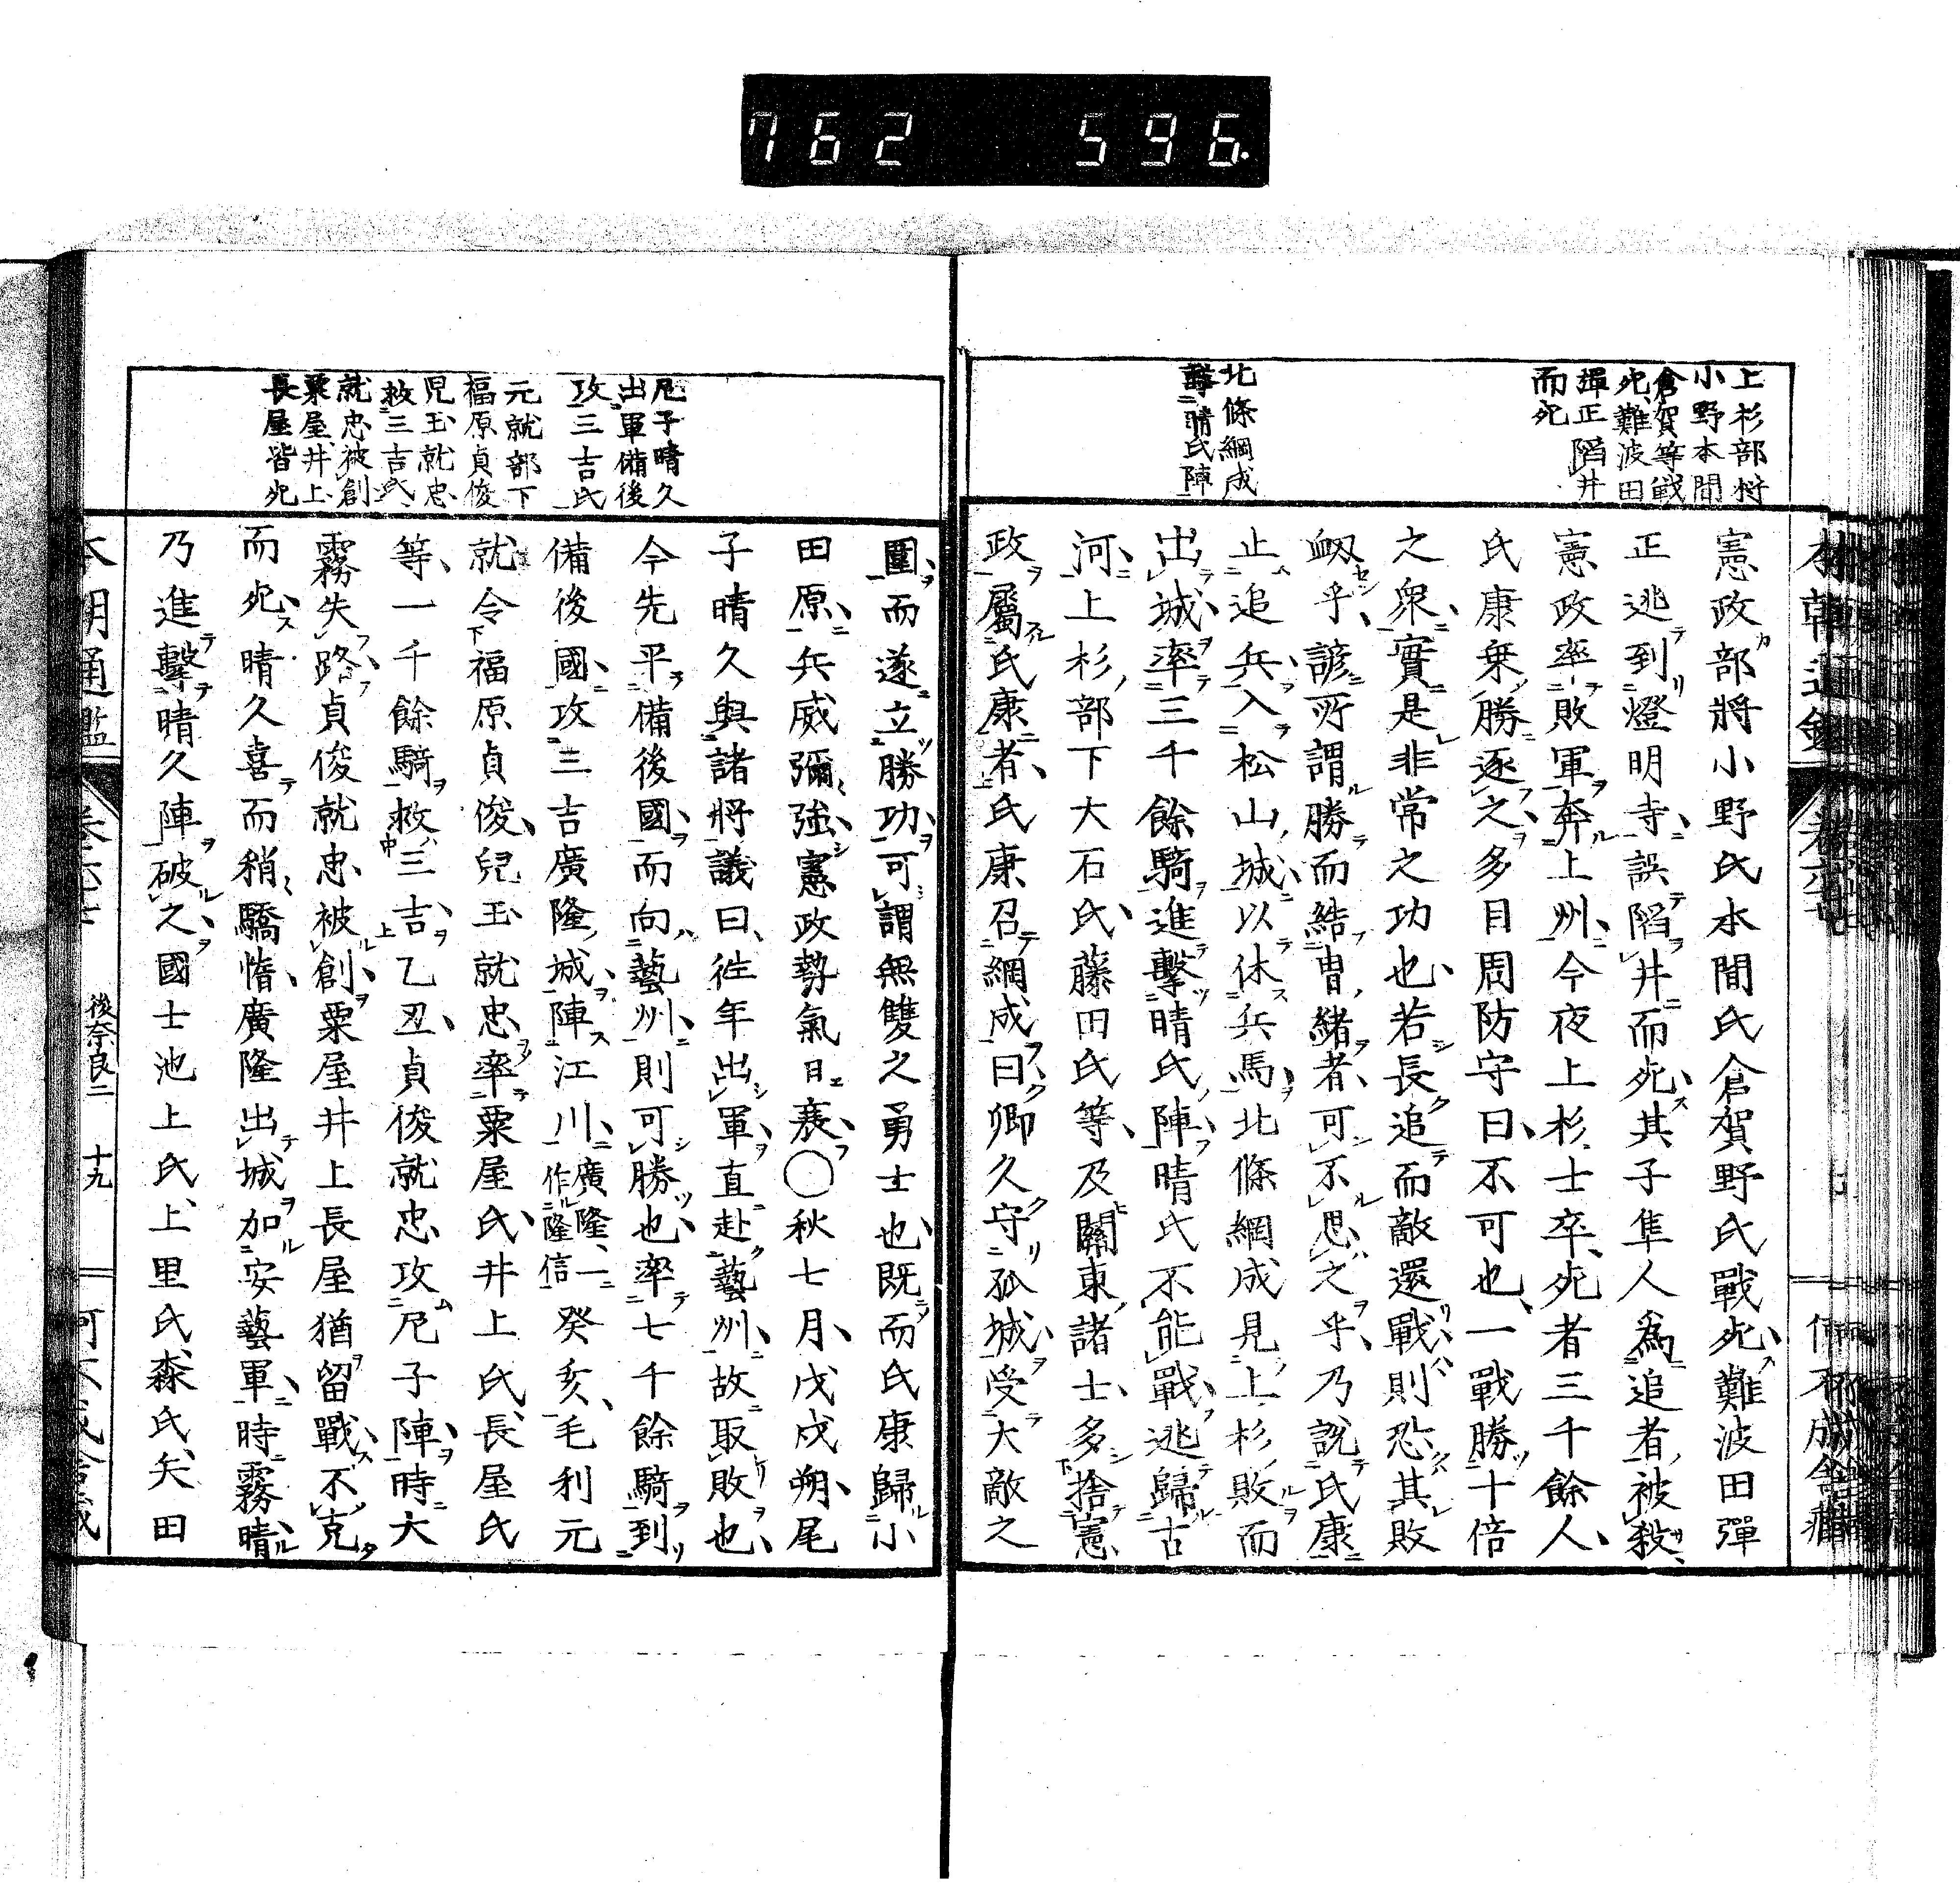 762 596.
上杉部將
小野本間
倉賀等戰
死難波田
彈正陷井
而死
北條綱成
擊晴氏陣
憲政部將小野氏本間氏倉賀野氏戰死難波田彈
正逃到燈明寺誤陷井而死其子隼人為追者被殺
憲政率敗軍奔上州今夜上杉士卒死者三千餘人
氏康乗勝逐之多目周防守曰不可也一戰勝十倍
之衆實是非常之功也若長追而敵還戰則恐其敗
衂乎諺所謂勝而結冑緒者可不思之乎乃說氏康
止追兵入松山城以休兵馬北條綱成見上杉敗而
出城率三千餘騎進擊晴氏陣晴氏不能戰逃歸古
河上杉部下大石氏藤田氏等及關東諸士多捨憲
政屬氏康者氏康召綱成曰卿久守孤城受大敵之
尼子晴久
出軍備後
攻三吉氏
元就部下
福原貞俊
児玉就忠
救三吉氏
就忠被創
粟屋井上
長屋皆死
圍而遂立勝功可謂無雙之勇士也既而氏康歸小
田原兵威彌強憲政勢氣日衰○秋七月戊戌朔尼
子晴久與諸將議曰徃年出軍直赴藝州故取敗也
今先平備後國而向藝州則可勝也率七千餘騎到
備後國攻三吉廣隆城陣江川廣隆一作隆信癸亥毛利元
就令福原貞俊兒玉就忠率粟屋氏井上氏長屋氏
等一千餘騎救三吉乙丑貞俊就忠攻尼子陣時大
霧失路貞俊就忠被創粟屋井上長屋猶留戰不克
而死晴久喜而稍驕惰廣隆出城加安藝軍時霧晴
乃進擊晴久陣破之國士池上氏上里氏森氏矢田
本朝通鑑 後奈良二 十九